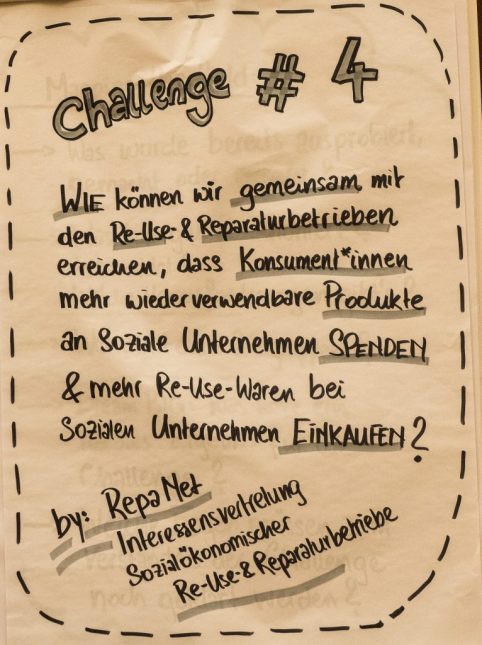 Challenge # 4
WIE können wir gemeinsam mit
den Re-Use- & Reparaturbetrieben
erreichen, dass Konsument*innen
mehr wiederverwendbare Produkte
an Soziale Unternehmen SPENDEN
& mehr Re-Use-Waren bei
Sozialen Unternehmen EINKAUFEN?
by: RepaNet
Interessensvertretung
Sozialökonomischer
Re-Use- & Reparaturbetriebe